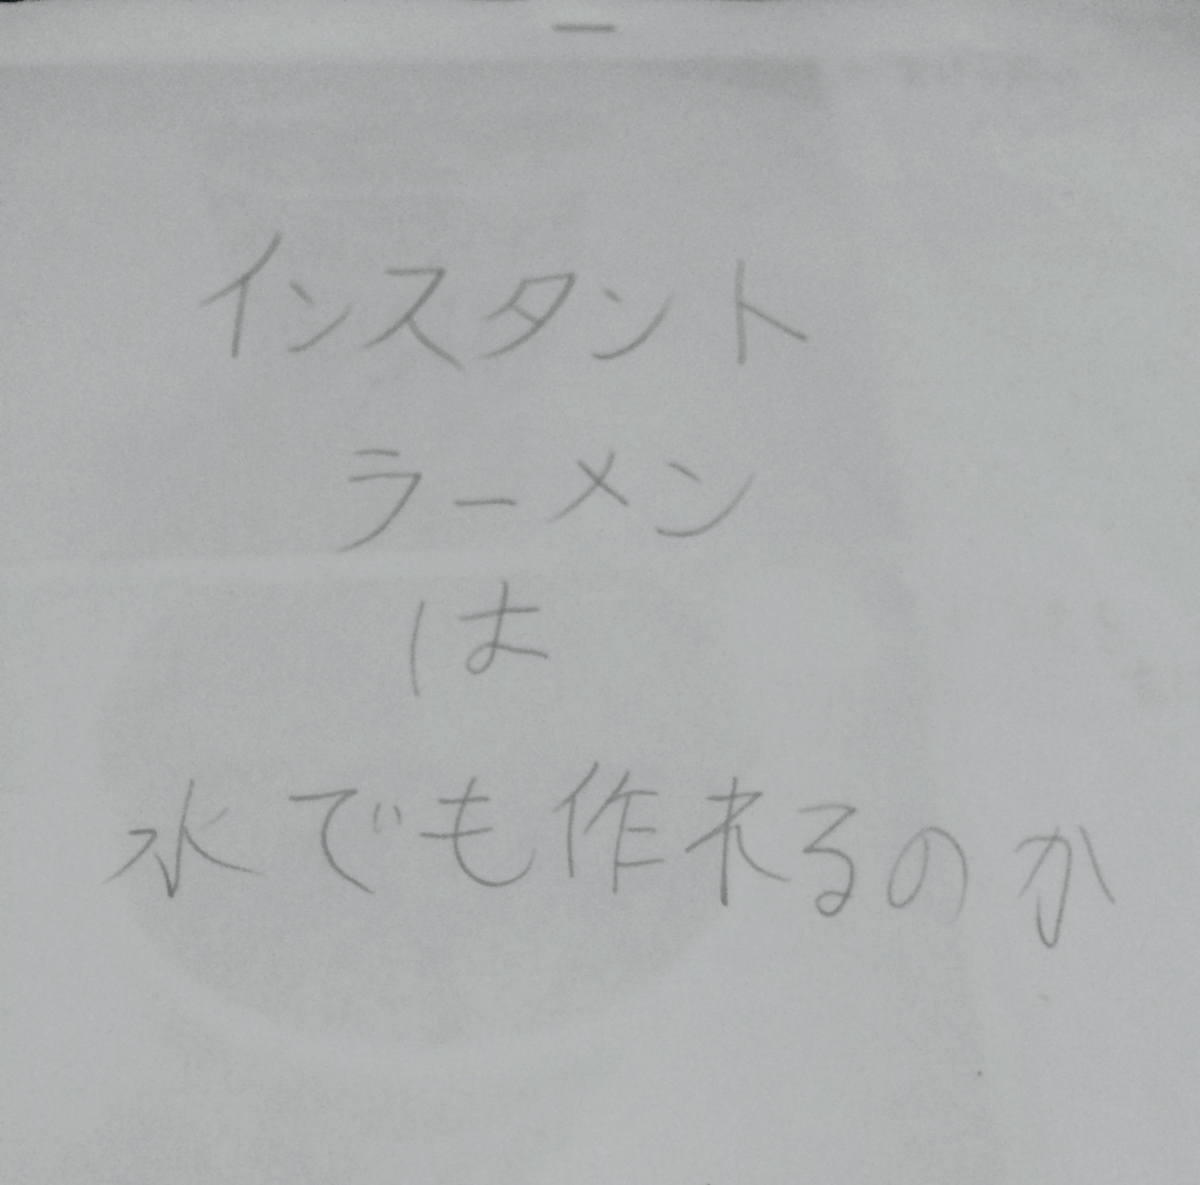 インスタント
ラーメン
は
水でも作れるのか